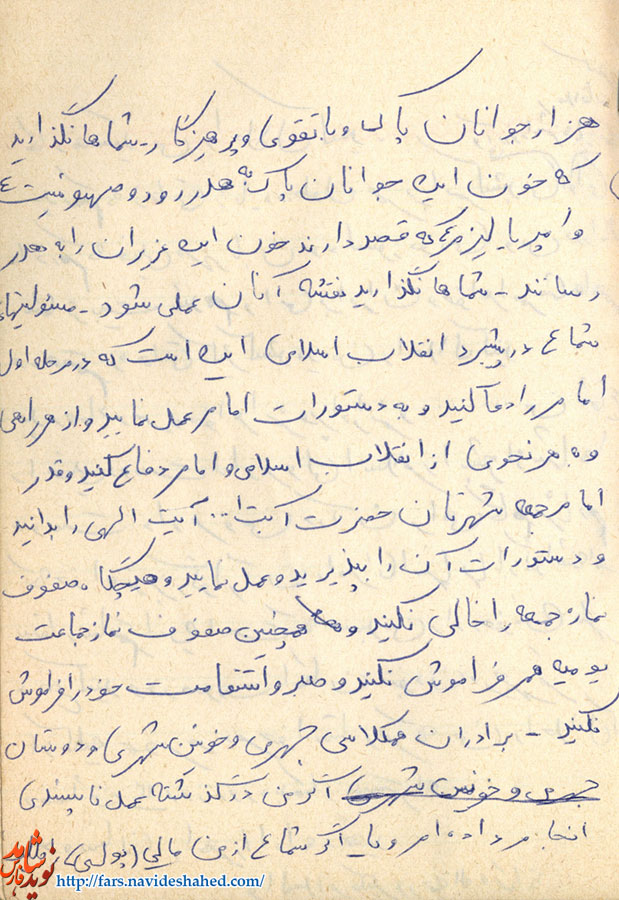 هزار جوانان پاک و با تقوی و پرهیزگار - شماها نگذارید
که خون این جوانان پاک به هدر رود و صهیونیست
و امپریالیزم که قصد دارند خون این عزیزان را به هدر
رسانند - شماها نگذارید نقشه آنان عملی شود - مسئولیتهای
شما در پیشبرد انقلاب اسلامی این است که در مرحله اول
امام را دعا کنید و به دستورات امام عمل نمایید و از هر راهی
و به هر نحوی از انقلاب اسلامی و امام دفاع کنید و قدر
امام جمعه شهرتان حضرت آیت ا... آیت الهی را بدانید
و دستورات آن را بپذیرید و عمل نمایید و هیچگاه صفوف
نماز جمعه را خالی نکنید و همچنین صفوف نماز جماعت
یومیه هم فراموش نکنید و صبر و استقامت خود را فراموش
نکنید - برادران همکلاسی جهرمی و خونین شهری و دوستان
جهرمی و خونین شهری اگر من در گذشته عمل ناپسندی
انجام داده ام و یا اگر شما از من مالی (پولی)
نوید شاهد
فارس
http://fars.navideshahed.com/